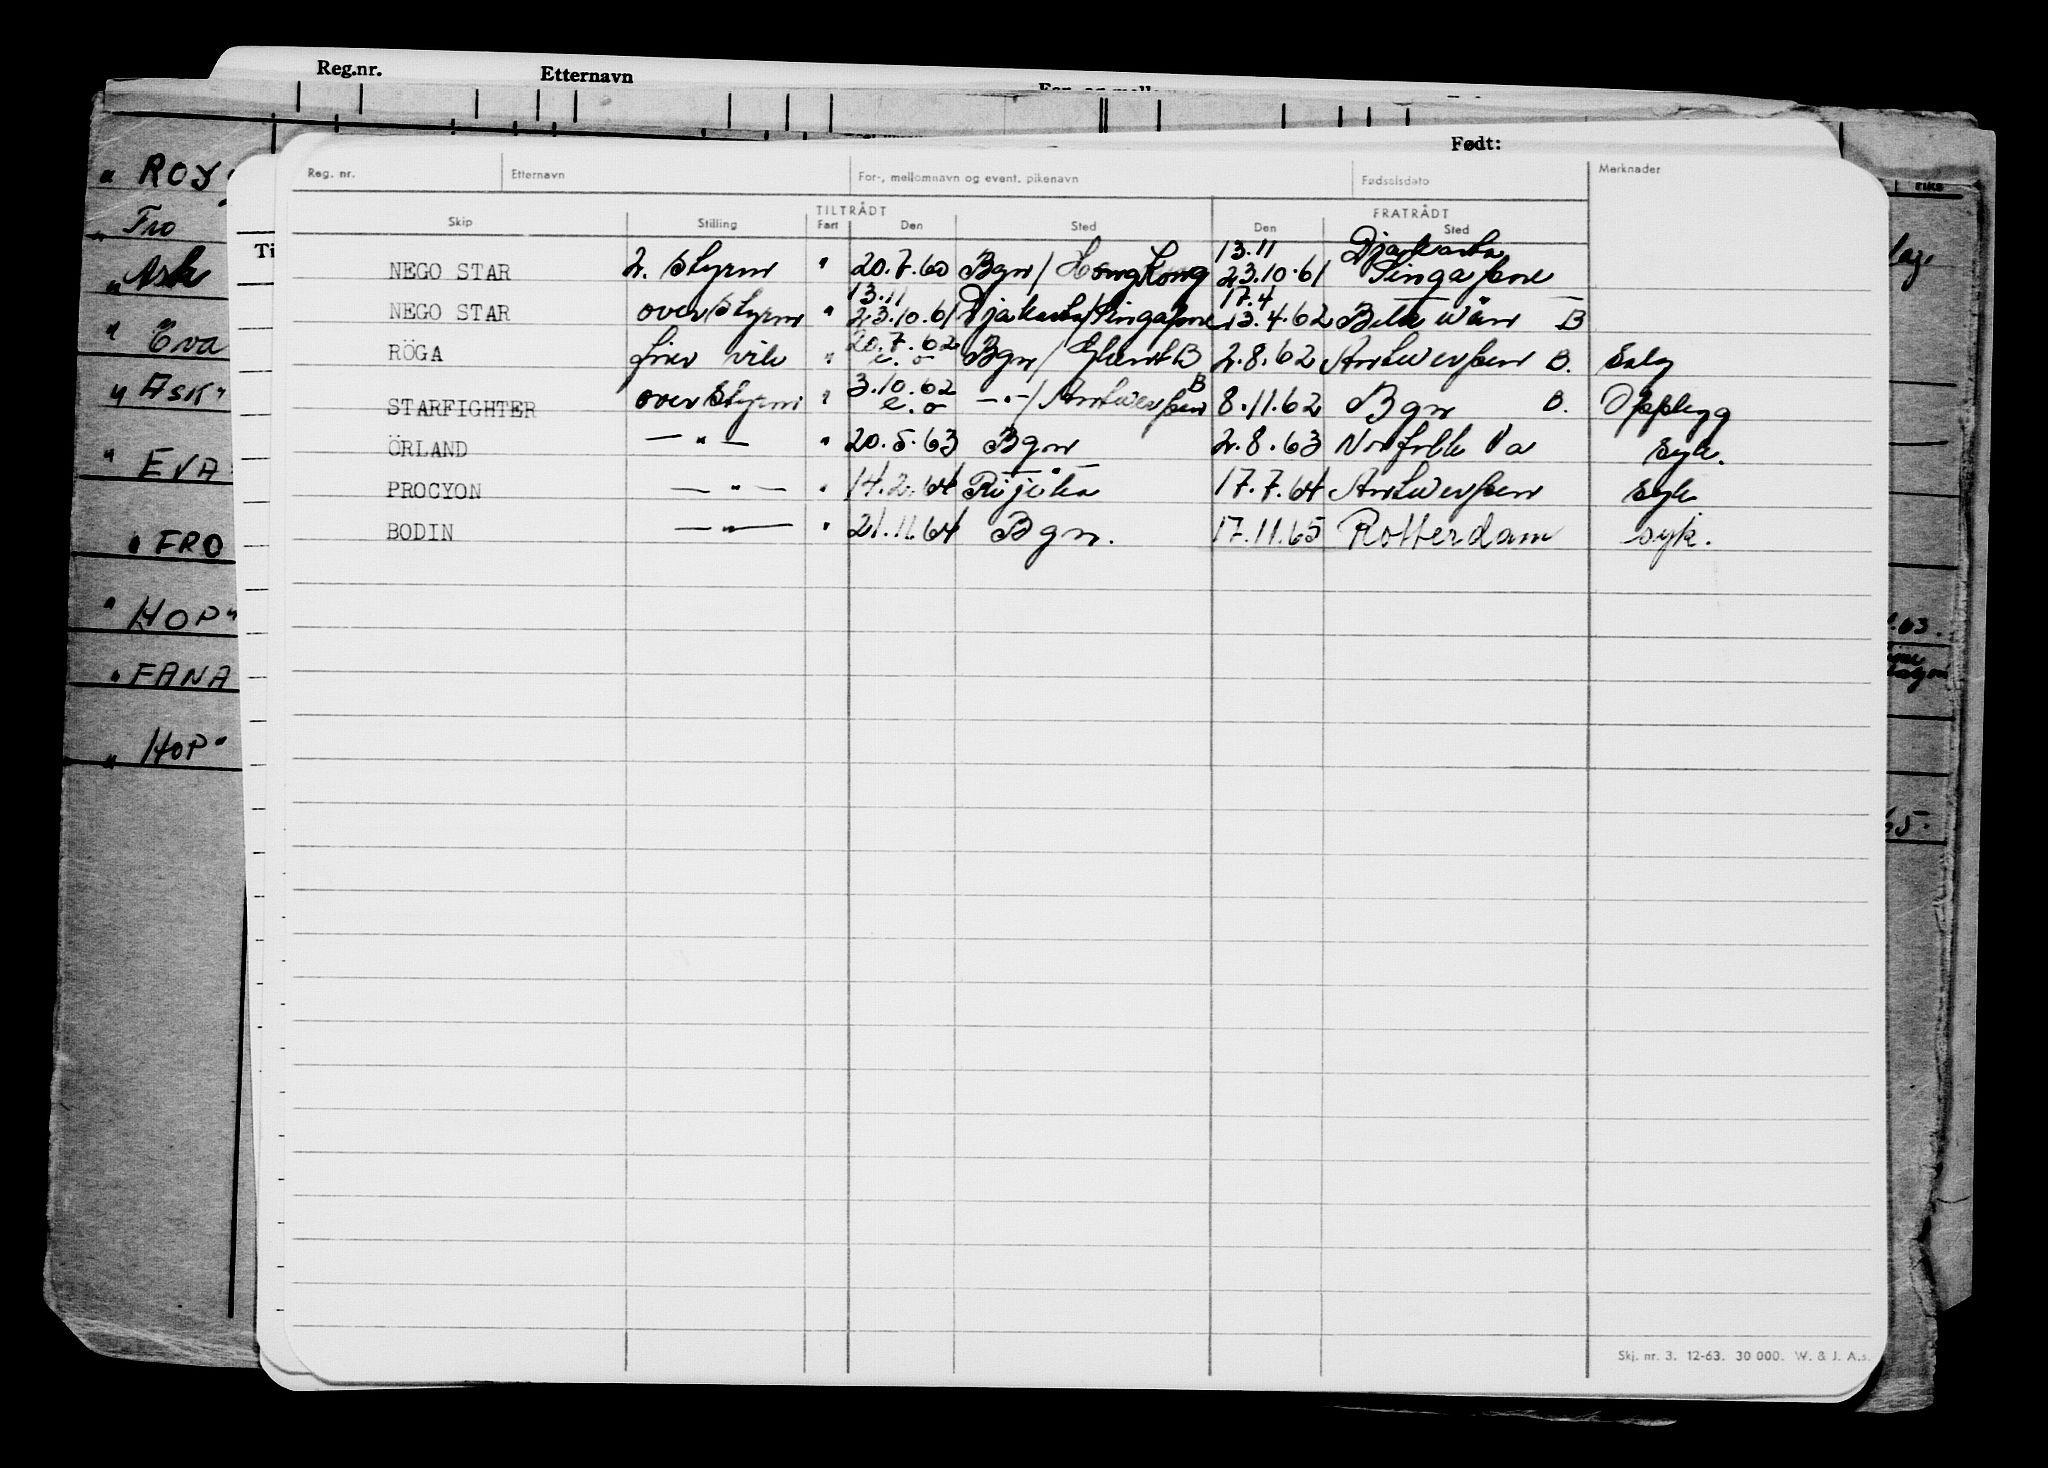 Reg.nr. Etternavn
Født:
Reg. nr. Etternavn For-, mellomnavn og event. pikenavn Fødselsdato Merknader
TILTRÅDT FRATRÅDT
Skip Stilling Fart Den Sted Den Sted
13.11 Djakarta
NEGO STAR 2. Styrm " 20.7.60 Bgn / Hong Kong 23.10.61 Singapore
13.11 17.4
NEGO STAR overstyrm " 23.10.61 Djakarta/Singapore 13.4.62 B
20.7.62
RÖGA " e. o Bgn / B 2.8.62 Antwerpen B. Salg
3.10.62 B
STARFIGHTER overstyrm " e. o —"—/ Antwerpen 8.11.62 Bgn B. Opplegg
ÖRLAND —"— " 20.5.63 Bgn 2.8.63 Norfolk Va syk.
PROCYON —"— " 14.2.64 Rijeka 17.7.64 Antwerpen syk
BODIN —"— " 21.11.64 Bgn. 17.11.65 Rotterdam syk.
" ROY
" Fro
" Ask
" Eva
" ASK"
" EVA
" FRO
" HOP"
" FANA
" HOP"
Skj. nr. 3. 12-63. 30 000. W. & J. A.s.